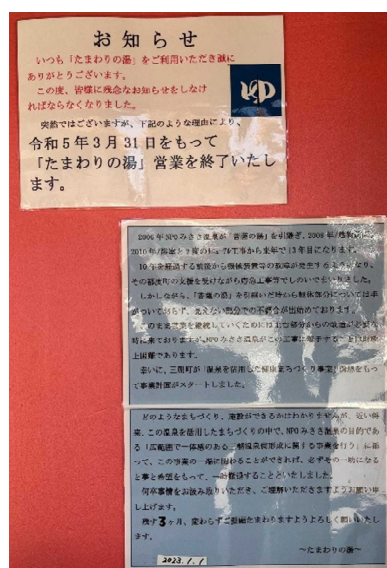 お知らせ
いつも「たまわりの湯」をご利用いただき誠に
ありがとうございます。
この度、皆様に残念なお知らせをしなけ
ればならなくなりました。
ゆ
突然ではございますが、下記のような理由により、
令和5年3月31日をもって
「たまわりの湯」営業を終了いたし
ます。
2006年NPOみささ温泉が「
」を引継ぎ、2008年/
2010年/
工事から来年で13年目になります。
10年を経過する
から機械装置等の故障が発生する
なり、
その都度町の支援を受けながら応急工事等でしのいでまいりました。
しかしながら、
を引継いだ時から
部分については手
がついておらず、見えない部分での不都合が出始めております。
このまま営業を継続していくためには
部分からの改造が必要な
時に来ておりますが、NPOみささ温泉がこの工事に着手することは財政
上困難であります。
幸いに、三朝町が「温泉を活用した健康まちづくり事業」
をもっ
て事業計画がスタートしました。
どのようなまちづくり、施設ができるかはわかりませんが、近い将
来、この温泉を活用したまちづくりの中で、NPOみささ温泉の目的であ
る「広範囲で一体感のある三朝温泉街形成に関する事業を行う」に添
って、この事業の一端に関わることができれば、必ずその一助になる
と夢と希望をもって、一時撤退することといたしました。
何卒事情をお汲み取りいただき、ご理解いただきますようお願い申
し上げます。
残す3ヶ月、変わらずご愛顧たまわりますようよろしく願いいたし
ます。
2023.1.1
～たまわりの湯～